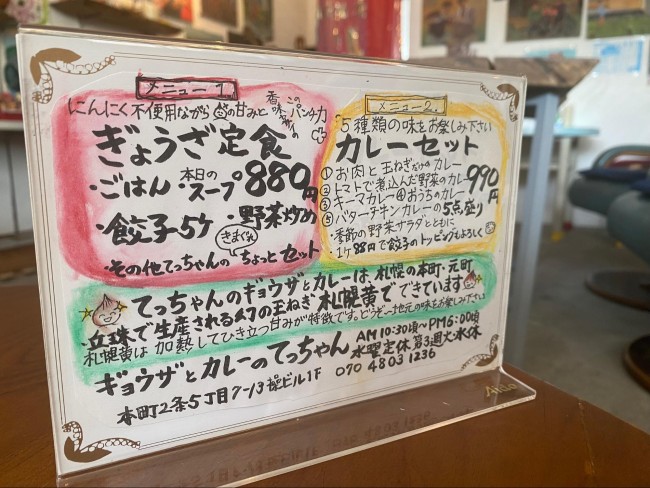 メニュー1.
にんにく不使用ながら の甘みと
香味野菜の
このパンチ力
ぎょうざ定食
・ごはん ・本日のスープ 880円
・餃子5ケ ・野菜炒め
・その他てっちゃんの きまぐれ ちょっとセット
メニュー2.
5種類の味をお楽しみ下さい
カレーセット
① お肉と玉ねぎだけのカレー
② トマトで煮込んだ野菜のカレー
③ キーマカレー ④ おうちのカレー
⑤ バターチキンカレーの5点盛り
990円
・季節の野菜サラダとともに
・1ヶ98円で餃子のトッピングもよろしく
てっちゃんのギョウザとカレーは、札幌の本町・元町
・丘珠で生産される幻の玉ねぎ札幌黄でできています
札幌黄は加熱してひき立つ甘みが特徴です。どうぞ地元の味をお楽しみ下さい
ギョウザとカレーのてっちゃん
AM10:30頃〜PM6:00頃
水曜定休 第3週火・水休
本町2条5丁目7-13 ビル1F 070 4803 1236